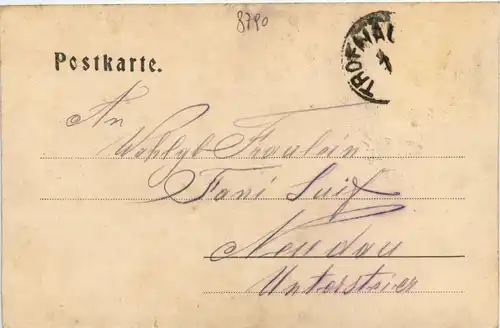 8790
Postkarte.
TROFAIA
An
Wohlgb Fräulein
Fani Luif
Neudau
Untersteier